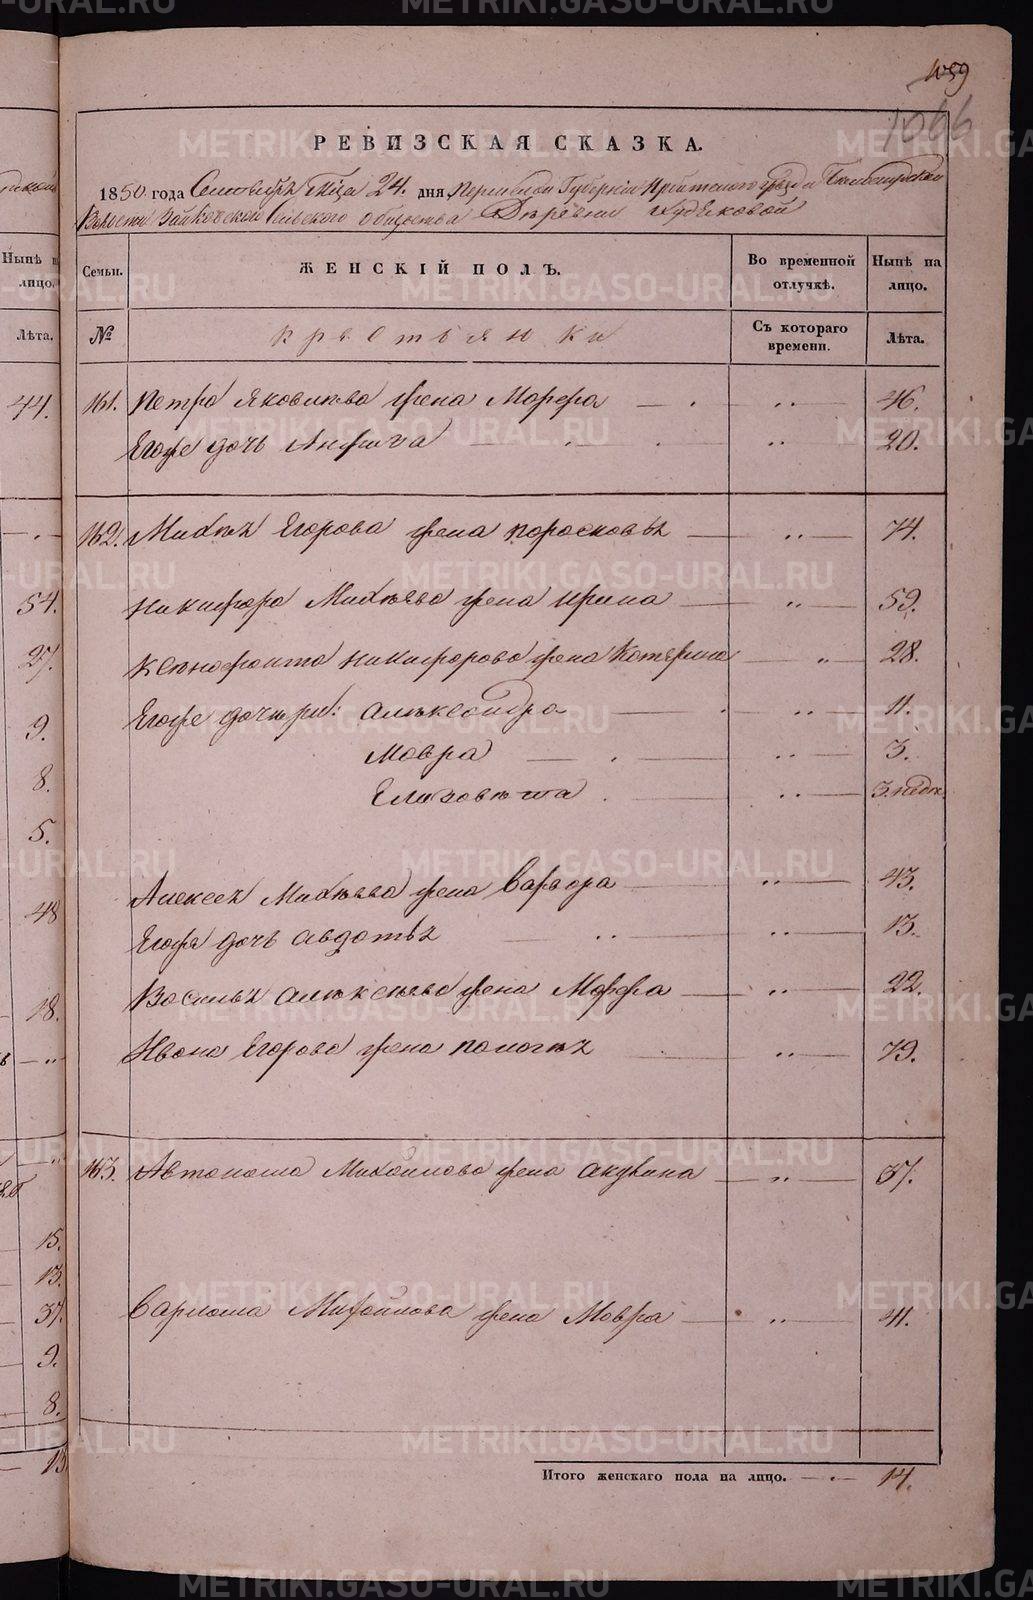 1059
1066
РЕВИЗСКАЯ СКАЗКА.
1850 года Сентября м҃ца 24. дня, Пермской Губернiи Ирбитскаго уѣзда
Волости Зайковскаго Сельскаго общества Деревни Худяковой
Семьи. ЖЕНСКІЙ ПОЛЪ. Во временной отлучкѣ. Нынѣ на лицо.
№ Крестьянки Съ котораго времени. Лѣта.
161. Петра Яковлева жена Марфа „ 46.
Егоже дочь Анфиса „ 20.
162. Михѣя Егорова жена Поросковья „ 74.
Никифора Михѣева жена Ирина „ 59.
Ксенофонта Никифорова жена Катерина „ 28.
Егоже дочери: Александра „ 11.
Мавра „ 3.
Елизовета „ 3. недѣл.
Алексея Михѣева жена Варвара „ 43.
Егоже дочь Авдотья „ 13.
Василья Алексеева жена Марфа „ 22.
Ивана Егорова жена Полагея „ 79.
163. Автонома Михайлова жена Акулина „ 37.
Варлама Михайлова жена Мавра „ 41.
Итого женскаго пола на лицо. 14.
Нынѣ
лицо.
Лѣта.
44.
54.
27.
9.
8.
5.
48
18.
15.
13.
37.
9.
8.
13.
METRIKI.GASO-URAL.RU